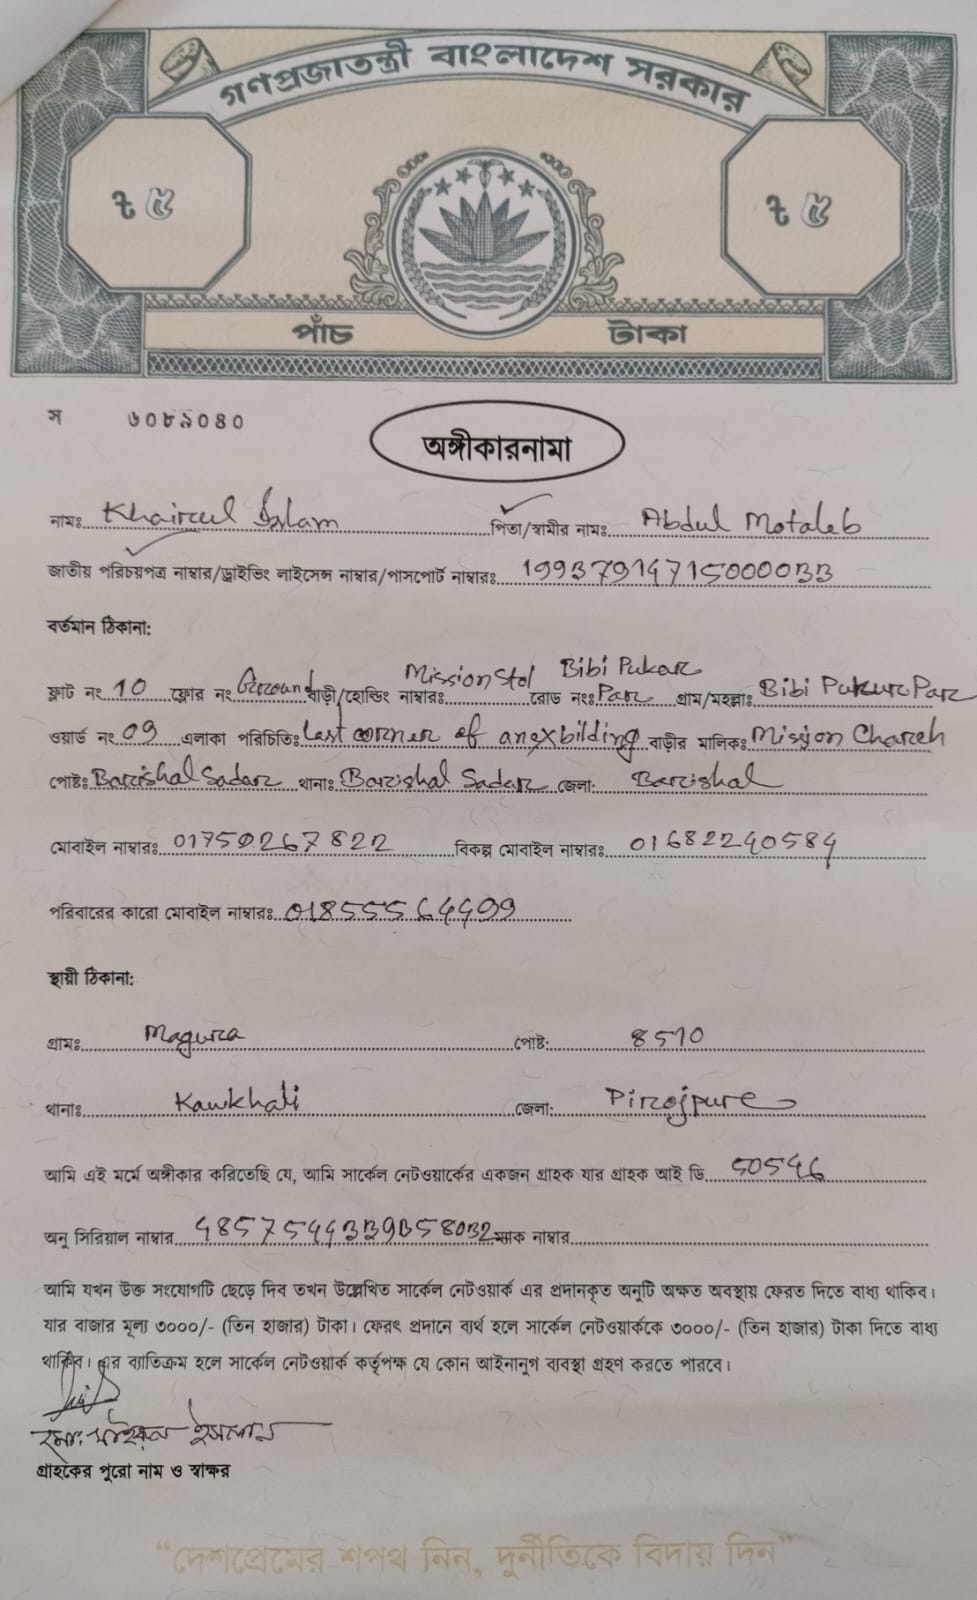 গণপ্রজাতন্ত্রী বাংলাদেশ সরকার
৳ ৫ ৳ ৫
পাঁচ টাকা
স ৬০৮৯০৪০
অঙ্গীকারনামা
নামঃ Khairul Islam পিতা/স্বামীর নামঃ Abdul Motaleb
জাতীয় পরিচয়পত্র নাম্বার/ড্রাইভিং লাইসেন্স নাম্বার/পাসপোর্ট নাম্বারঃ 19937914715000033
বর্তমান ঠিকানা:
ফ্লাট নং 10 ফ্লোর নং Ground বাড়ী/হোল্ডিং নাম্বারঃ Mission রোড নংঃ Bibi Pukur Par গ্রাম/মহল্লাঃ Bibi Pukur Par
ওয়ার্ড নং 09 এলাকা পরিচিতিঃ last corner of anexbilding বাড়ীর মালিকঃ Mission
পোষ্টঃ Barishal Sadar থানাঃ Barishal Sadar জেলা: Barishal
মোবাইল নাম্বারঃ 01750267822 বিকল্প মোবাইল নাম্বারঃ 01682240584
পরিবারের কারো মোবাইল নাম্বারঃ
স্থায়ী ঠিকানা:
গ্রামঃ Magura পোষ্ট: 8510
থানাঃ Kawkhali জেলা: Pirojpure
আমি এই মর্মে অঙ্গীকার করিতেছি যে, আমি সার্কেল নেটওয়ার্কের একজন গ্রাহক যার গ্রাহক আই ডি 50546
অনু সিরিয়াল নাম্বার ম্যাক নাম্বার
আমি যখন উক্ত সংযোগটি ছেড়ে দিব তখন উল্লেখিত সার্কেল নেটওয়ার্ক এর প্রদানকৃত অনুটি অক্ষত অবস্থায় ফেরত দিতে বাধ্য থাকিব।
যার বাজার মূল্য ৩০০০/- (তিন হাজার) টাকা। ফেরৎ প্রদানে ব্যর্থ হলে সার্কেল নেটওয়ার্ককে ৩০০০/- (তিন হাজার) টাকা দিতে বাধ্য
থাকিব। এর ব্যাতিক্রম হলে সার্কেল নেটওয়ার্ক কর্তৃপক্ষ যে কোন আইনানুগ ব্যবস্থা গ্রহণ করতে পারবে।
গ্রাহকের পুরো নাম ও স্বাক্ষর
“দেশপ্রেমের শপথ নিন, দুর্নীতিকে বিদায় দিন”